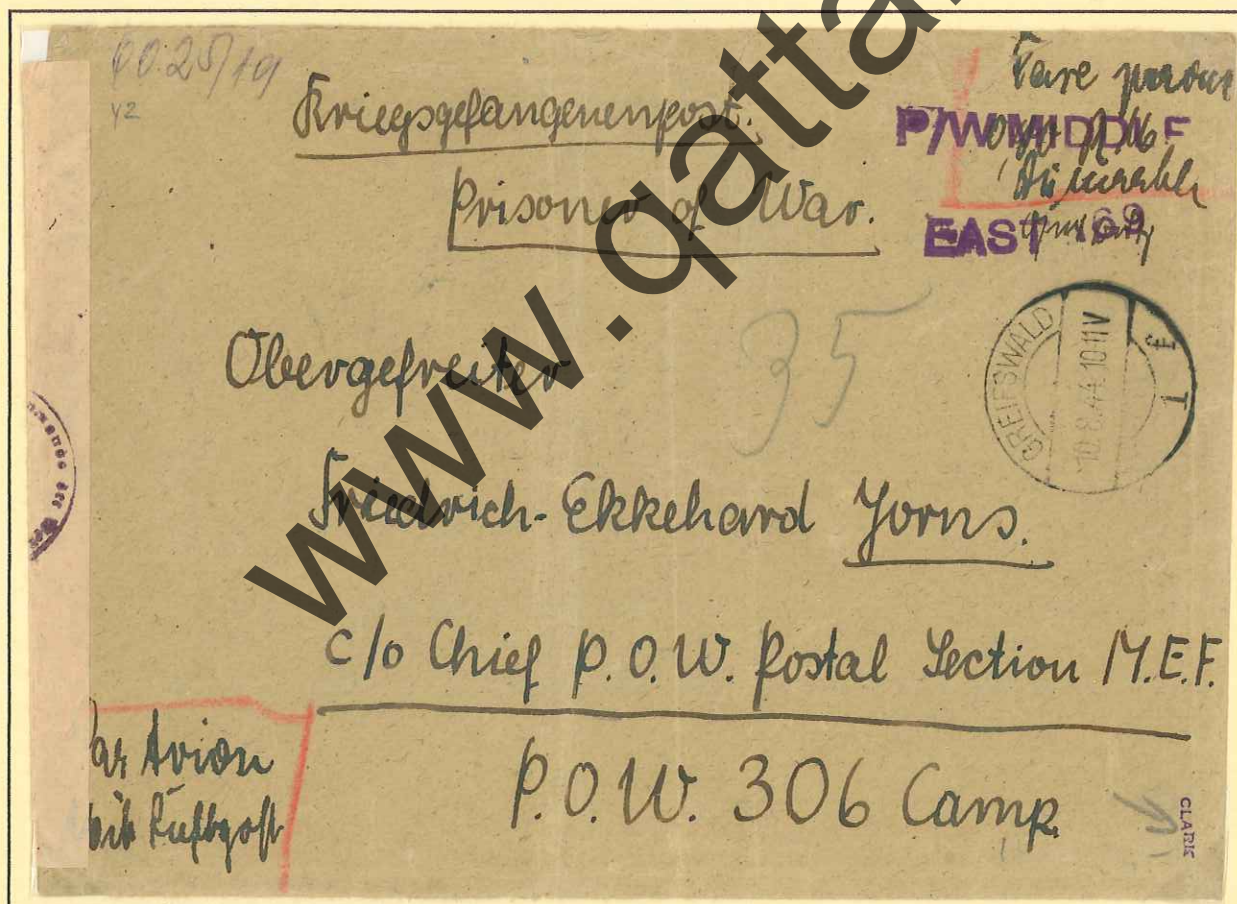 25/19
42
Kriegsgefangenenpost.
Prisoner of War.
Taxe
P/W MIDDLE
EAST
GREIFSWALD
10.8.44.10-11V
Obergefreiter
35
Friedrich-Ekkehard Jorns.
c/o Chief P.O.W. Postal Section M.E.F.
P.O.W. 306 Camp
Par Avion
Mit Luftpost
CLARK
www.qatta